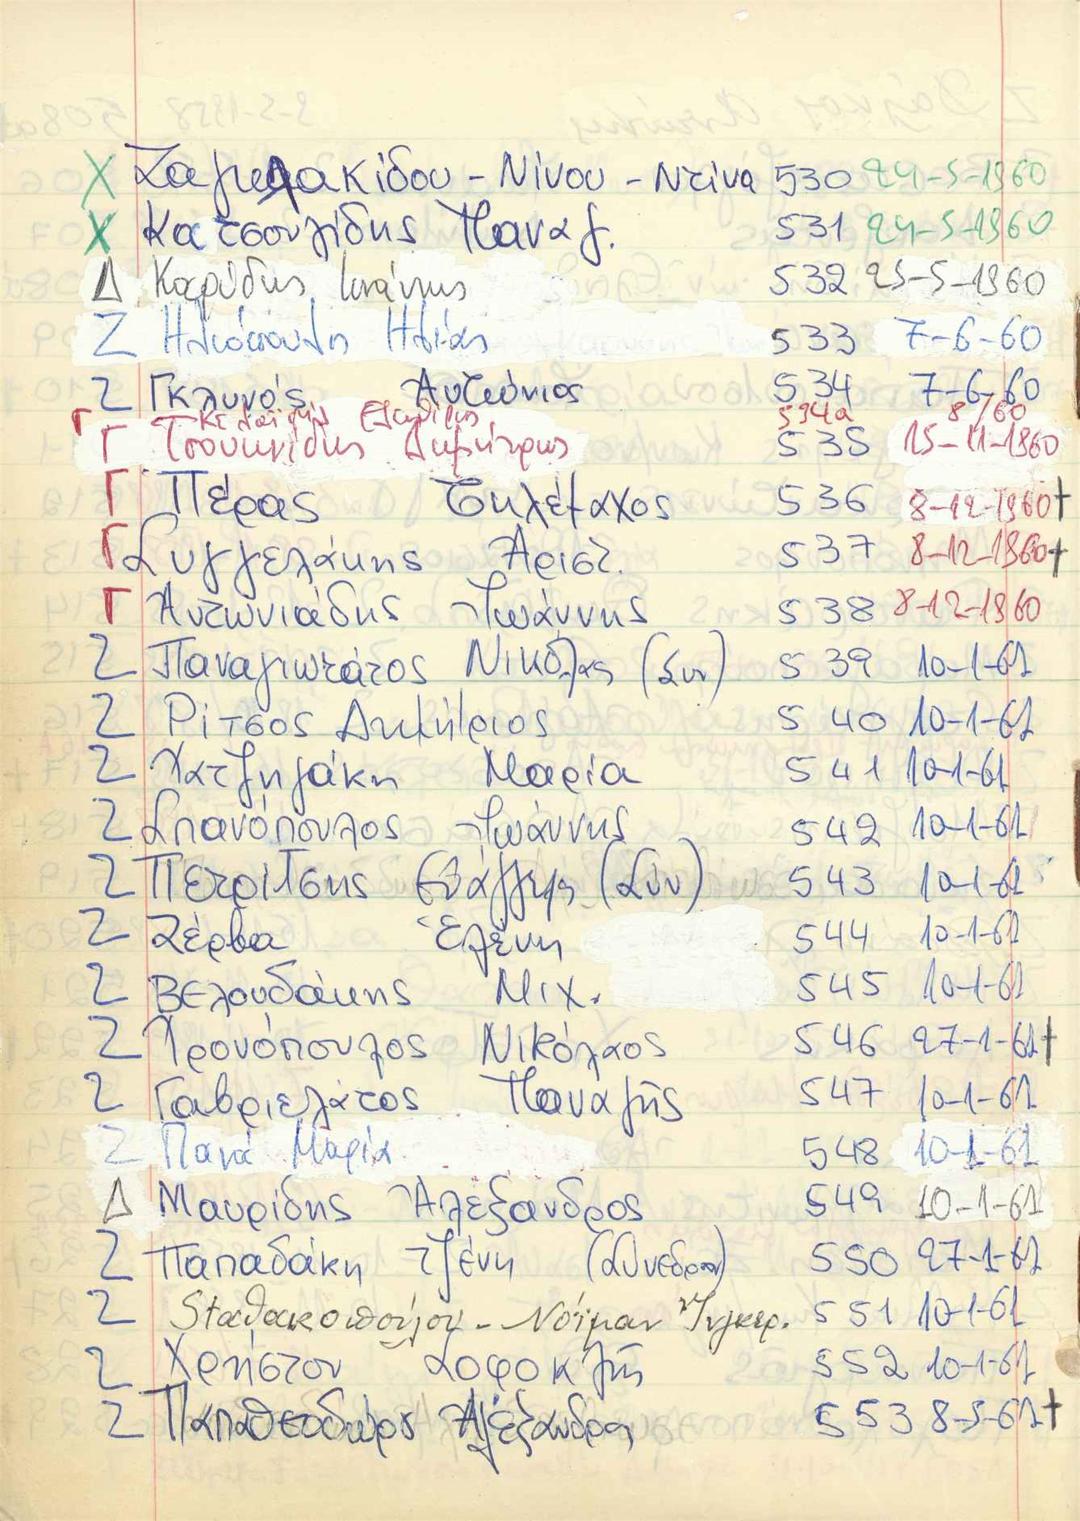 Χ Ζαγκλακίδου - Νίνου - Ντίνα 530 24-5-1960
Χ Κατσουλίδης Παναγ. 531 24-5-1960
Δ Καρύδης Ιωάννης 532 25-5-1960
Ζ Ηλιόπουλος Ηλίας 533 7-6-60
Ζ Γκλυνός Αντώνιος 534 7-6-60
Γ 534α 8/60
Γ Τσουκνίδης Δημήτριος 535 15-11-1960
Γ Πέρας Τηλέμαχος 536 8-12-1960†
Γ Συγγελάκης Αριστ. 537 8-12-1960†
Γ Αντωνιάδης Ιωάννης 538 8-12-1960
Ζ Παναγιωτάτος Νικόλας (Συν) 539 10-1-61
Ζ Ρίτσος Δημήτριος 540 10-1-61
Ζ Χατζηγάκη Μαρία 541 10-1-61
Ζ Σπανόπουλος Ιωάννης 542 10-1-61
Ζ Πετρίτσης Ευάγγελος (Συν) 543 10-1-61
Ζ Ζέρβα Ελένη 544 10-1-61
Ζ Βελουδάκης Μιχ. 545 10-1-61
Ζ Χρονόπουλος Νικόλαος 546 27-1-61†
Ζ Γαβριελάτος Παναγής 547 10-1-61
Ζ Πανά Μαρία 548 10-1-61
Δ Μαυρίδης Αλέξανδρος 549 10-1-61
Ζ Παπαδάκη Τζένη (Συνεδρ) 550 27-1-61
Ζ Σταθακοπούλου - Νόϊμαν Ίνγκερ. 551 10-1-61
Ζ Χρήστου Σοφοκλής 552 10-1-61
Ζ Παπαθεοδώρος Αλέξανδρος 553 8-5-61†